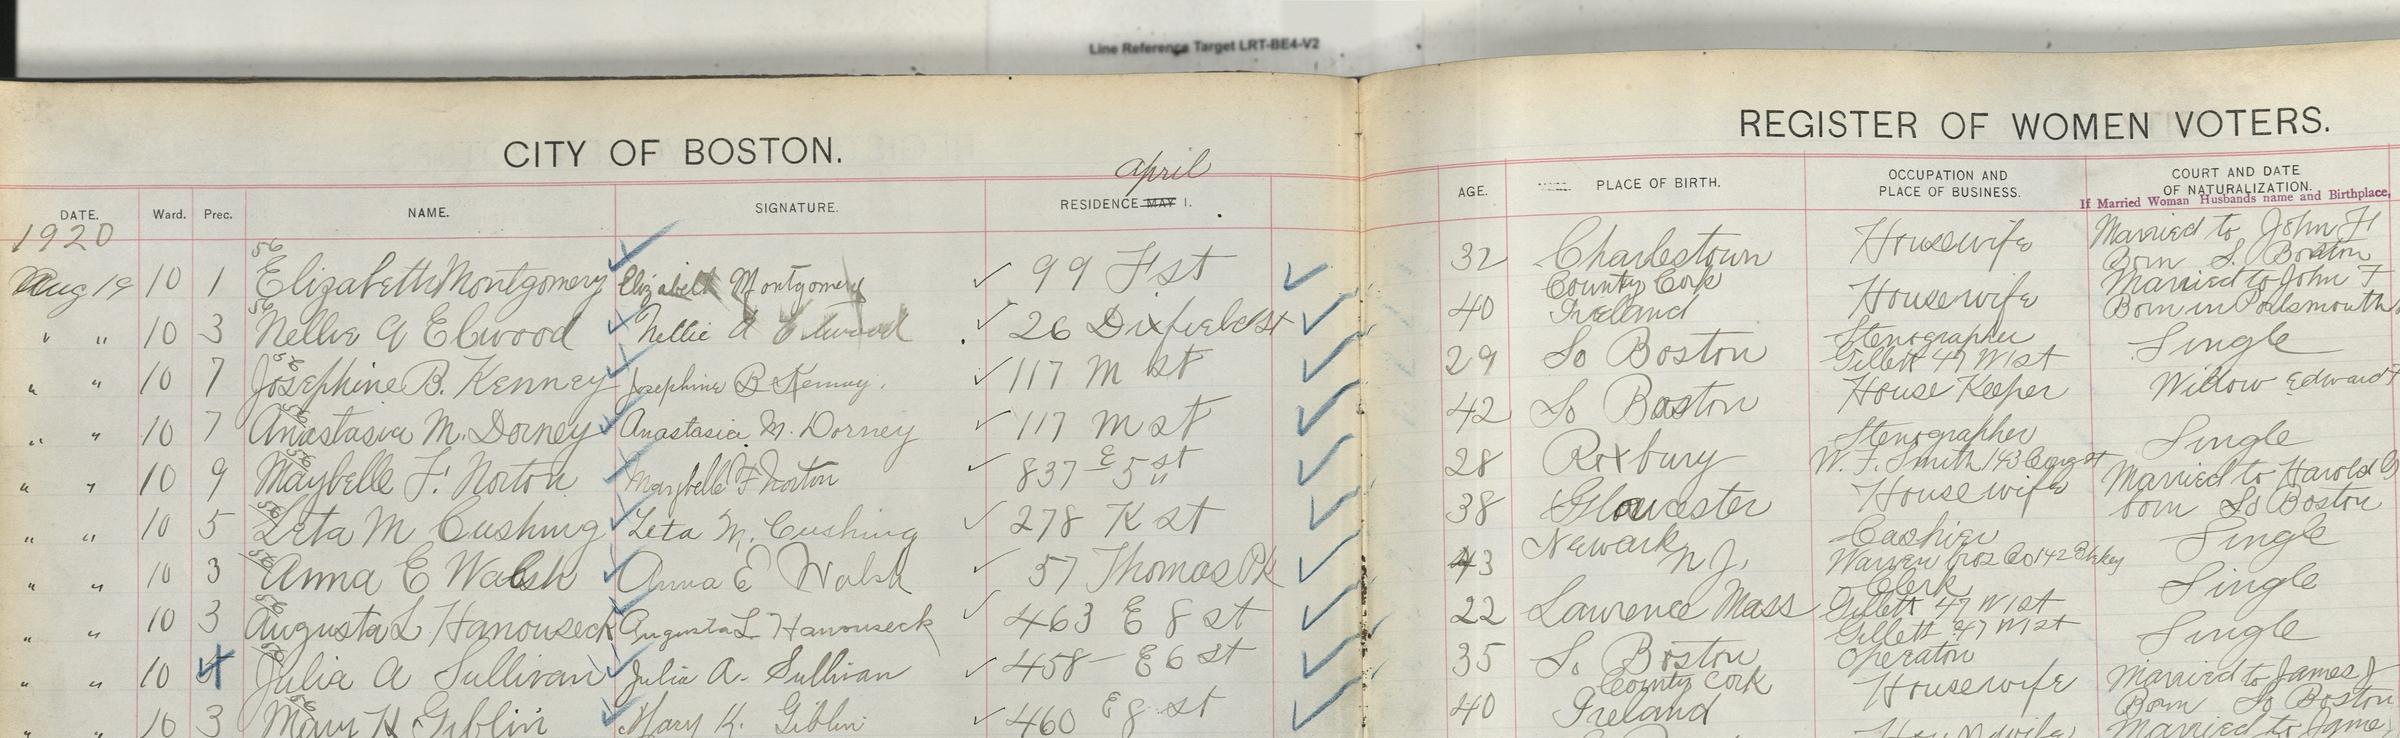 Line Reference Target LRT-BE4-V2
CITY OF BOSTON.
REGISTER OF WOMEN VOTERS.
April
DATE. Ward. Prec. NAME. SIGNATURE. RESIDENCE MAY 1. AGE. PLACE OF BIRTH. OCCUPATION AND PLACE OF BUSINESS. COURT AND DATE OF NATURALIZATION.
If Married Woman Husbands name and Birthplace,
1920
Aug 19 10 1 56 Elizabeth Montgomery Elizabeth Montgomery 99 F st 32 Charlestown Housewife Married to John H
Born S. Boston
" " 10 3 56 Nellie A Elwood Nellie A Elwood 26 Dixfield st 40 County Cork Ireland Housewife Married to John F
Born in Portsmouth
" " 10 7 56 Josephine B. Kenney Josephine B Kenney. 117 M st 29 So Boston Stenographer Gillett 47 W 1st Single
" " 10 7 56 Anastasia M. Dorney Anastasia M. Dorney 117 M st 42 So Boston House Keeper Widow Edward F
" " 10 9 56 Maybelle F. Norton Maybelle F Norton 837 E 5 st 28 Roxbury Stenographer W. F. Smith 143 Single
" " 10 5 56 Leta M Cushing Leta M. Cushing 278 K st 38 Gloucester Housewife Married to Harold
born So Boston
" " 10 3 56 Anna E Walsh Anna E Walsh 57 Thomas Pk 43 Newark N J. Cashier Warren Bros Co 142 Berkey Single
" " 10 3 56 Augusta L Hanouseck Augusta L Hanouseck 463 E 8 st 22 Lawrence Mass Clerk Gillett 47 W 1st Single
" " 10 4 56 Julia A Sullivan Julia A. Sullivan 458 E 6 st 35 So Boston Gillett 47 W 1st Operator Single
" " 10 3 56 Mary K Giblin Mary K. Giblin 460 E 8 st 40 County Cork Ireland Housewife Married to James J
Born So Boston
Housewife Married to Jame